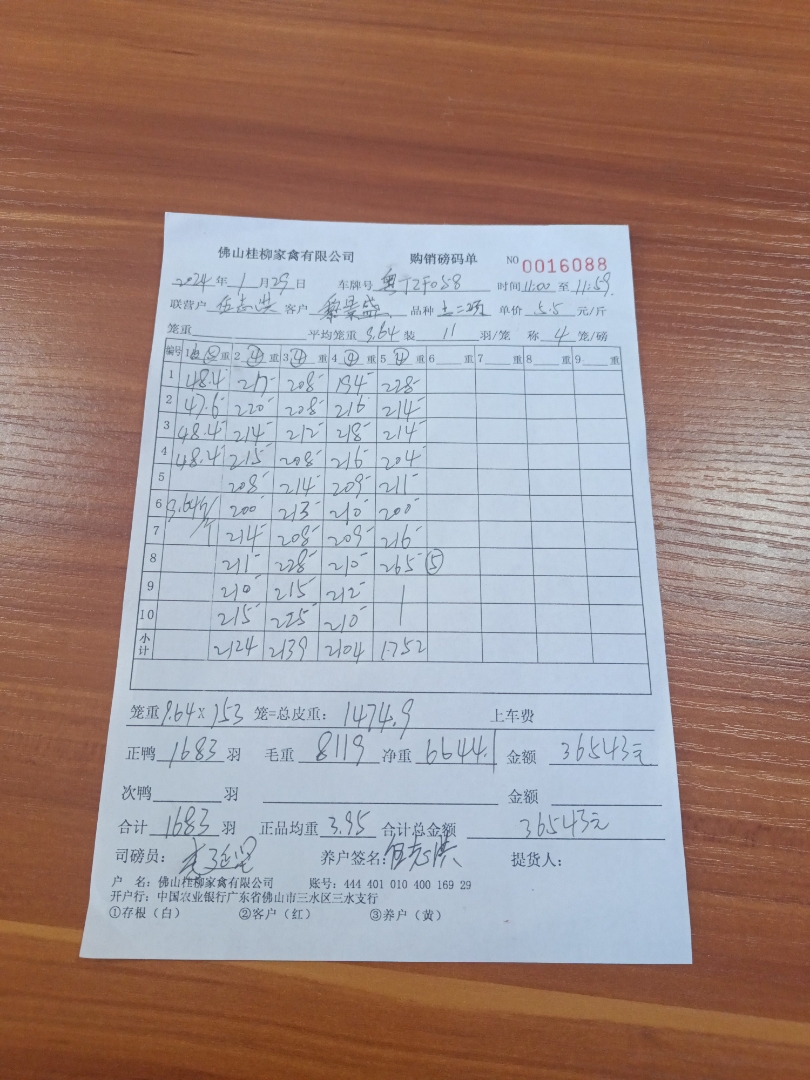 佛山桂柳家禽有限公司 购销磅码单 NO 0016088
2024年1月29日 车牌号 粤TZF058 时间11:00至11:59
联营户 伍志洪 客户 黎景盛 品种 土二项 单价 5.5 元/斤
笼重 平均笼重 9.64 装 11 羽/笼 称 4 笼/磅
编号 1 皮② 重 2 ④ 重 3 ④ 重 4 ④ 重 5 ④ 重 6 重 7 重 8 重 9 重
1 48.4 217 208 194 228
2 47.6 220 208 216 214
3 48.4 214 212 218 214
4 48.4 215 208 216 204
5 208 214 209 211
6 9.64 200 213 210 200
7 214 208 209 216
8 211 228 210 265 ⑤
9 210 215 212
10 215 225 210
小计 2124 2139 2104 1752
笼重 9.64 × 153 笼=总皮重: 1474.9 上车费
正鸭 1683 羽 毛重 8119 净重 6644.1 金额 36543元
次鸭 羽 金额
合计 1683 羽 正品均重 3.95 合计总金额 36543元
司磅员: 养户签名: 伍志洪 提货人:
户 名: 佛山桂柳家禽有限公司 账号: 444 401 010 400 169 29
开户行: 中国农业银行广东省佛山市三水区三水支行
①存根(白) ②客户(红) ③养户(黄)